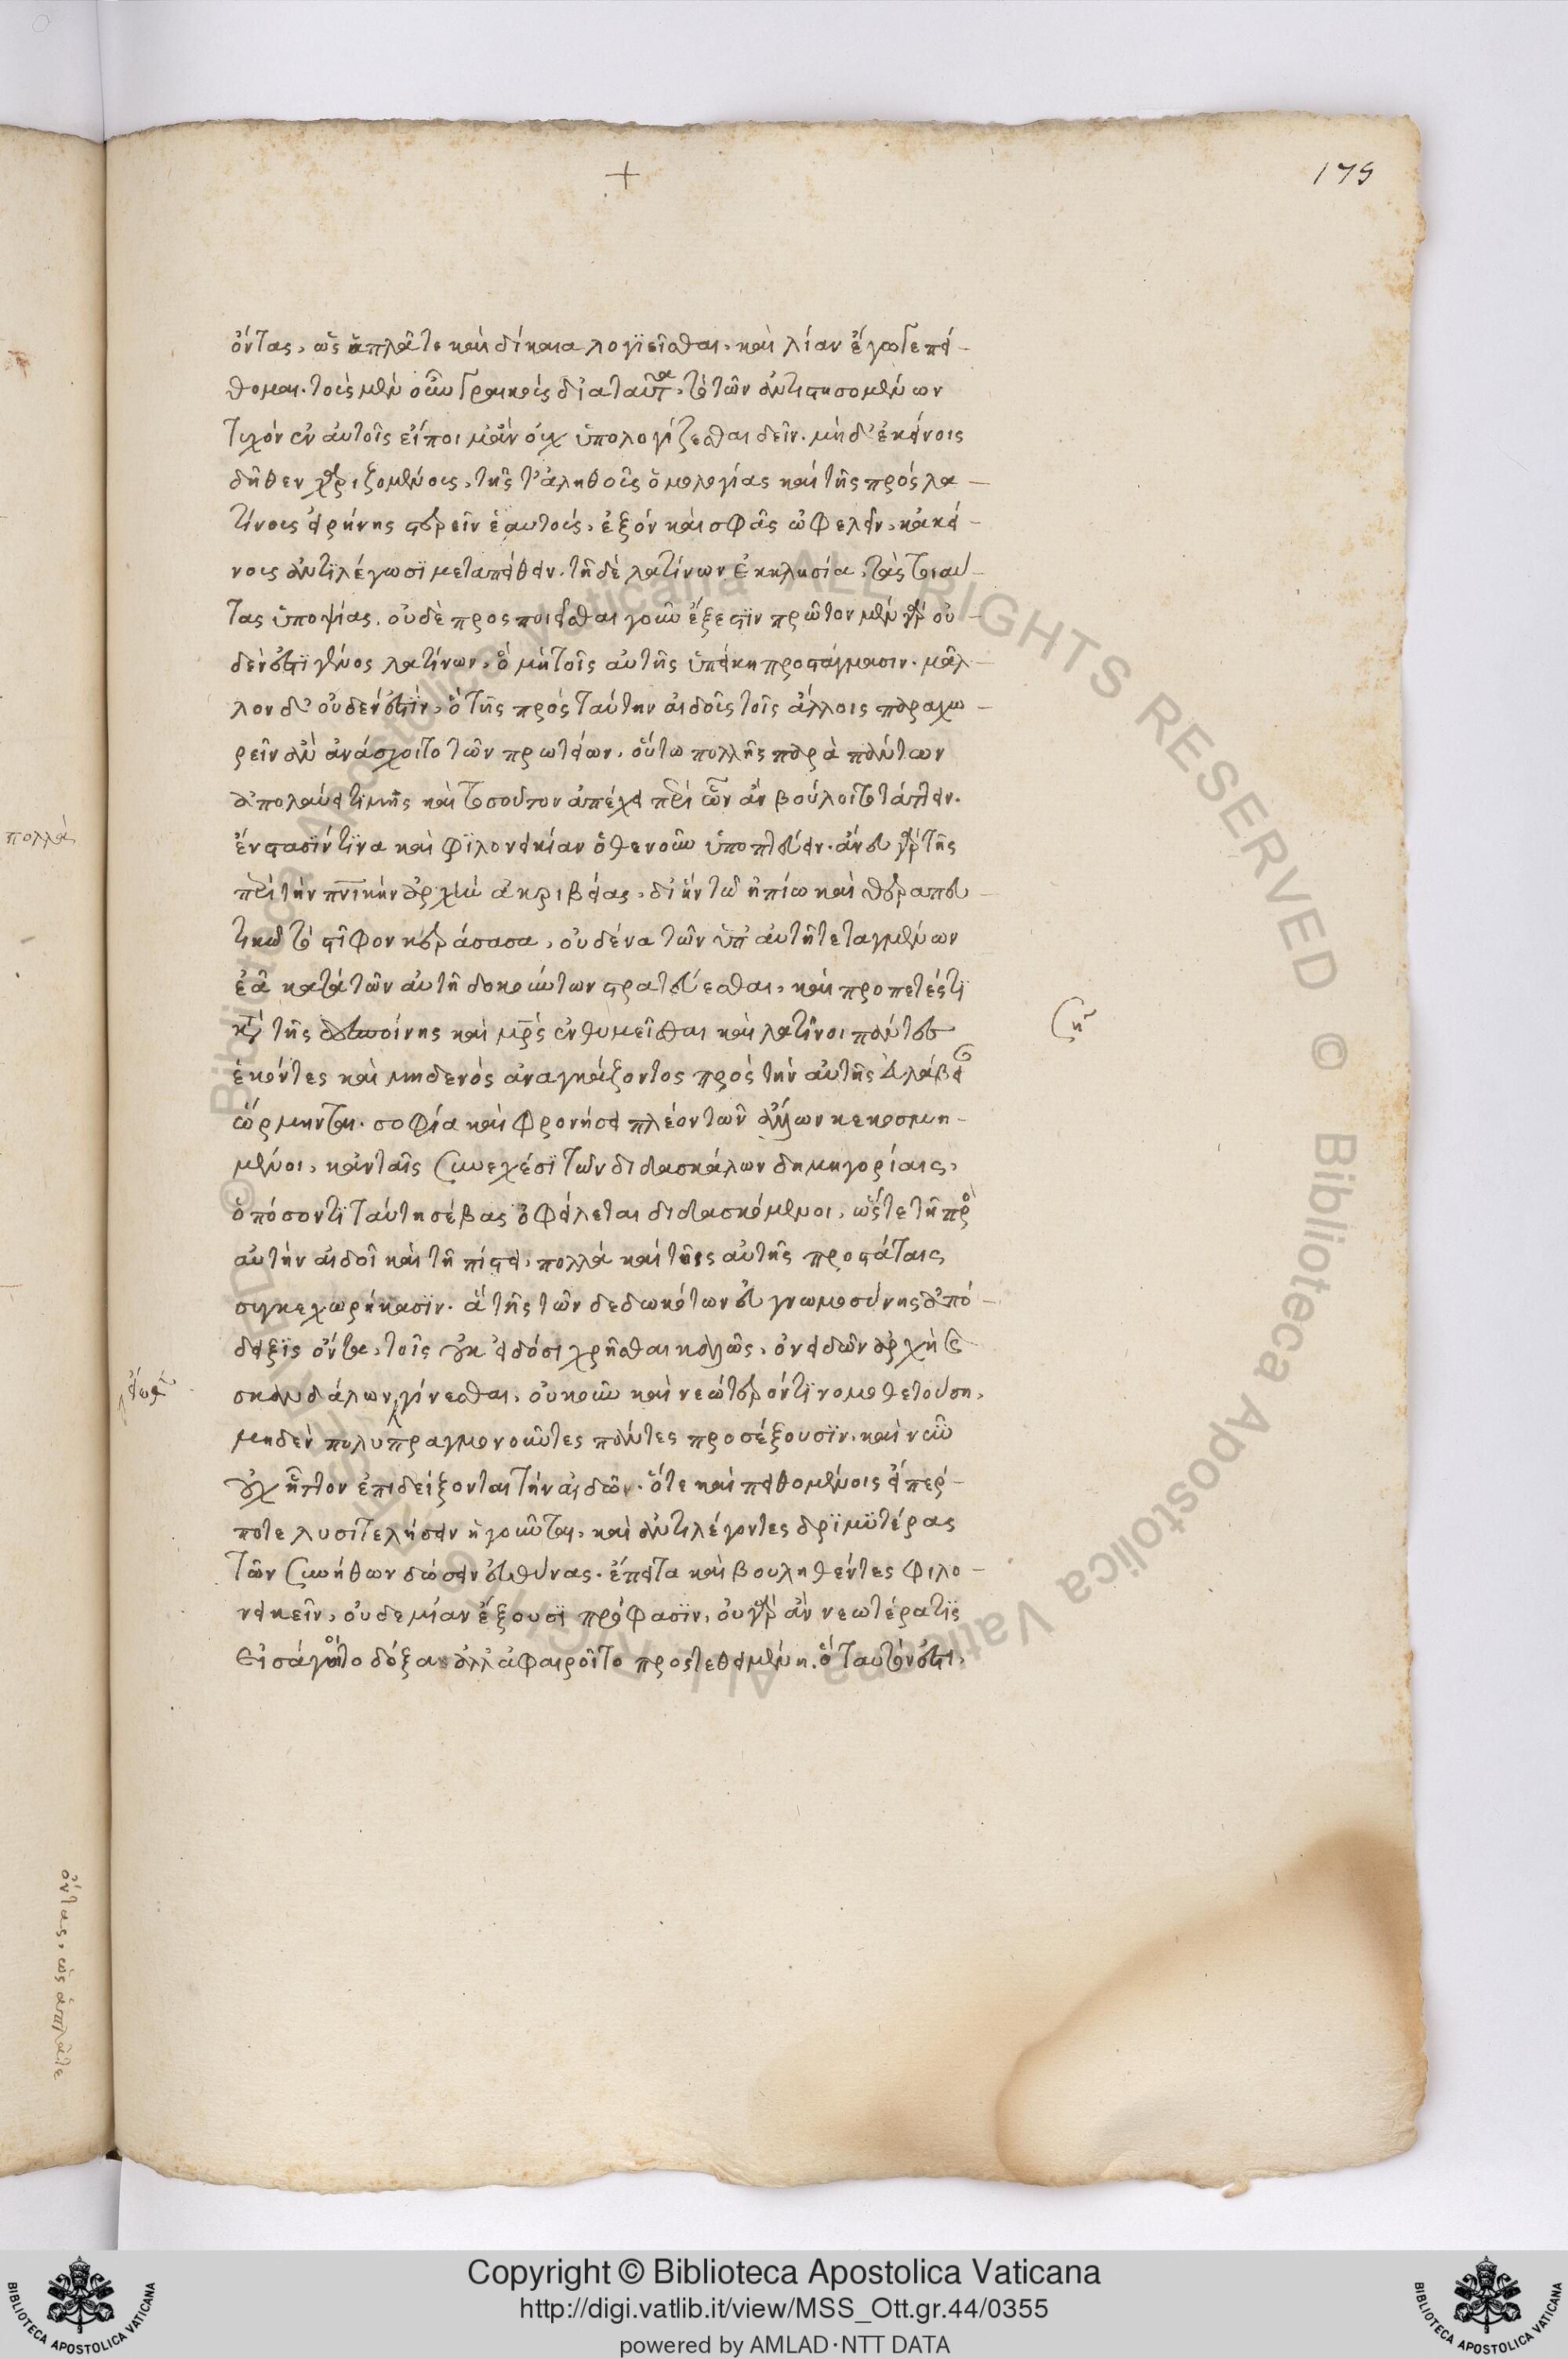 +
175
ὄντας, ὡς ἁπλᾶ τε καὶ δίκαια λογιεῖσθαι, καὶ λίαν ἔγωγε πεί-
θομαι. τοῖς μὲν οὖν Γραικοῖς διὰ ταῦτα, τὸ τῶν ἀντιστησομένων
τυχὸν ἐν αὐτοῖς εἴποιμ' ἂν οὐχ ὑπολογίζεσθαι δεῖν. μὴ δ' ἐκείνοις
δῆθεν χαριζομένοις, τῆς τ' ἀληθοῦς ὁμολογίας καὶ τῆς πρὸς λα-
τίνους εἰρήνης στερεῖν ἑαυτοὺς, ἐξὸν καὶ σφᾶς ὠφελεῖν, κἀκεί-
νους ἀντιλέγωσι μεταπείθειν. τῇ δὲ λατίνων ἐκκλησίᾳ, τὰς τοιαύ-
τας ὑποψίας, οὐδὲ προσποιεῖσθαι γοῦν ἔξεστιν πρῶτον μὲν γὰρ οὐ-
δέν ἐστι γένος λατίνων, ὃ μὴ τοῖς αὐτῆς ὑπείκῃ προστάγμασιν. μᾶλ-
λον δ' οὐδέν ἐστιν, ὃ τῆς πρὸς ταύτην αἰδοῦς τοῖς ἄλλοις παραχω-
ρεῖν ἂν ἀνάσχοιτο τῶν πρωτείων. οὕτω πολλῆς παρὰ πάντων
ἀπολαύει τιμῆς καὶ τοσοῦτον ἀπέχει περὶ ὧν ἂν βούλοιτο τάττειν.
ἔνστασίν τινα καὶ φιλονεικίαν ὁθενοῦν ὑποπτεύειν. ἄνευ γὰρ τῆς
περὶ τὴν πνικὴν ἀρχὴν ἀκριβείας, δι' ἣν τῷ ἠπίῳ καὶ θεραπευ-
τικῷ τὸ στῖφον κεράσασα, οὐδένα τῶν ὑπ' αὐτῇ τεταγμένων
ἐᾷ κατὰ τῶν αὐτῇ δοκούντων στρατεύεσθαι, καὶ προπετές τι
κατὰ τῆς καὶ μρς ἐνθυμεῖσθαι καὶ λατῖνοι πάντες
ἑκόντες καὶ μηδενὸς ἀναγκάζοντος πρὸς τὴν αὐτῆς εὐλάβειαν
ὥρμηνται. σοφίᾳ καὶ φρονήσει πλέον τῶν ἄλλων κεκοσμη-
μένοι, κἀν ταῖς συνεχέσι τῶν διδασκάλων δημηγορίαις,
ὁπόσον τι ταύτῃ σέβας ὀφείλεται διδασκόμενοι, ὥστε τῇ πρὸς
αὐτὴν αἰδοῖ καὶ τῇ πίστει, πολλὰ καὶ τοῖς αὐτῆς προστάταις
συγκεχωρήκασιν. ἃ τῆς τῶν δεδωκότων εὐγνωμοσύνης ἀπό-
δειξις ὄντα, τοῖς οὐκ εἰδόσι χρῆσθαι καλῶς, ὀνειδῶν ἀρχὴ καὶ
σκανδάλων γίνεσθαι, οὐκοῦν καὶ νεώτερόν τι νομοθετούσῃ,
μηδὲν πολυπραγμονοῦντες πάντες προσέξουσιν. καὶ νῦν
οὐχ ἧττον ἐπιδείξονται τὴν αἰδῶ. ὅτε καὶ πειθομένοις εἴπερ-
ποτε λυσιτελήσειν ἡγοῦνται, καὶ ἀντιλέγοντες δριμυτέρας
τῶν συνήθων δώσειν εὐθύνας. ἔπειτα καὶ βουληθέντες φιλο-
νεικεῖν, οὐδεμίαν ἕξουσι πρόφασιν, οὐ γὰρ ἂν νεωτέρα τις
εἰσάγοιτο δόξα ἀλλ' ἀφαιροῖτο προστεθειμένη. ὃ ταυτόν ἐστι,
πολλὰ
ὄντας, ὡς ἁπλᾶ τε
Copyright © Biblioteca Apostolica Vaticana
http://digi.vatlib.it/view/MSS_Ott.gr.44/0355
powered by AMLAD·NTT DATA
BIBLIOTECA APOSTOLICA VATICANA
BIBLIOTECA APOSTOLICA VATICANA
© Biblioteca Apostolica Vaticana ALL RIGHTS RESERVED © Biblioteca Apostolica Vaticana ALL RIGHTS RESERVED